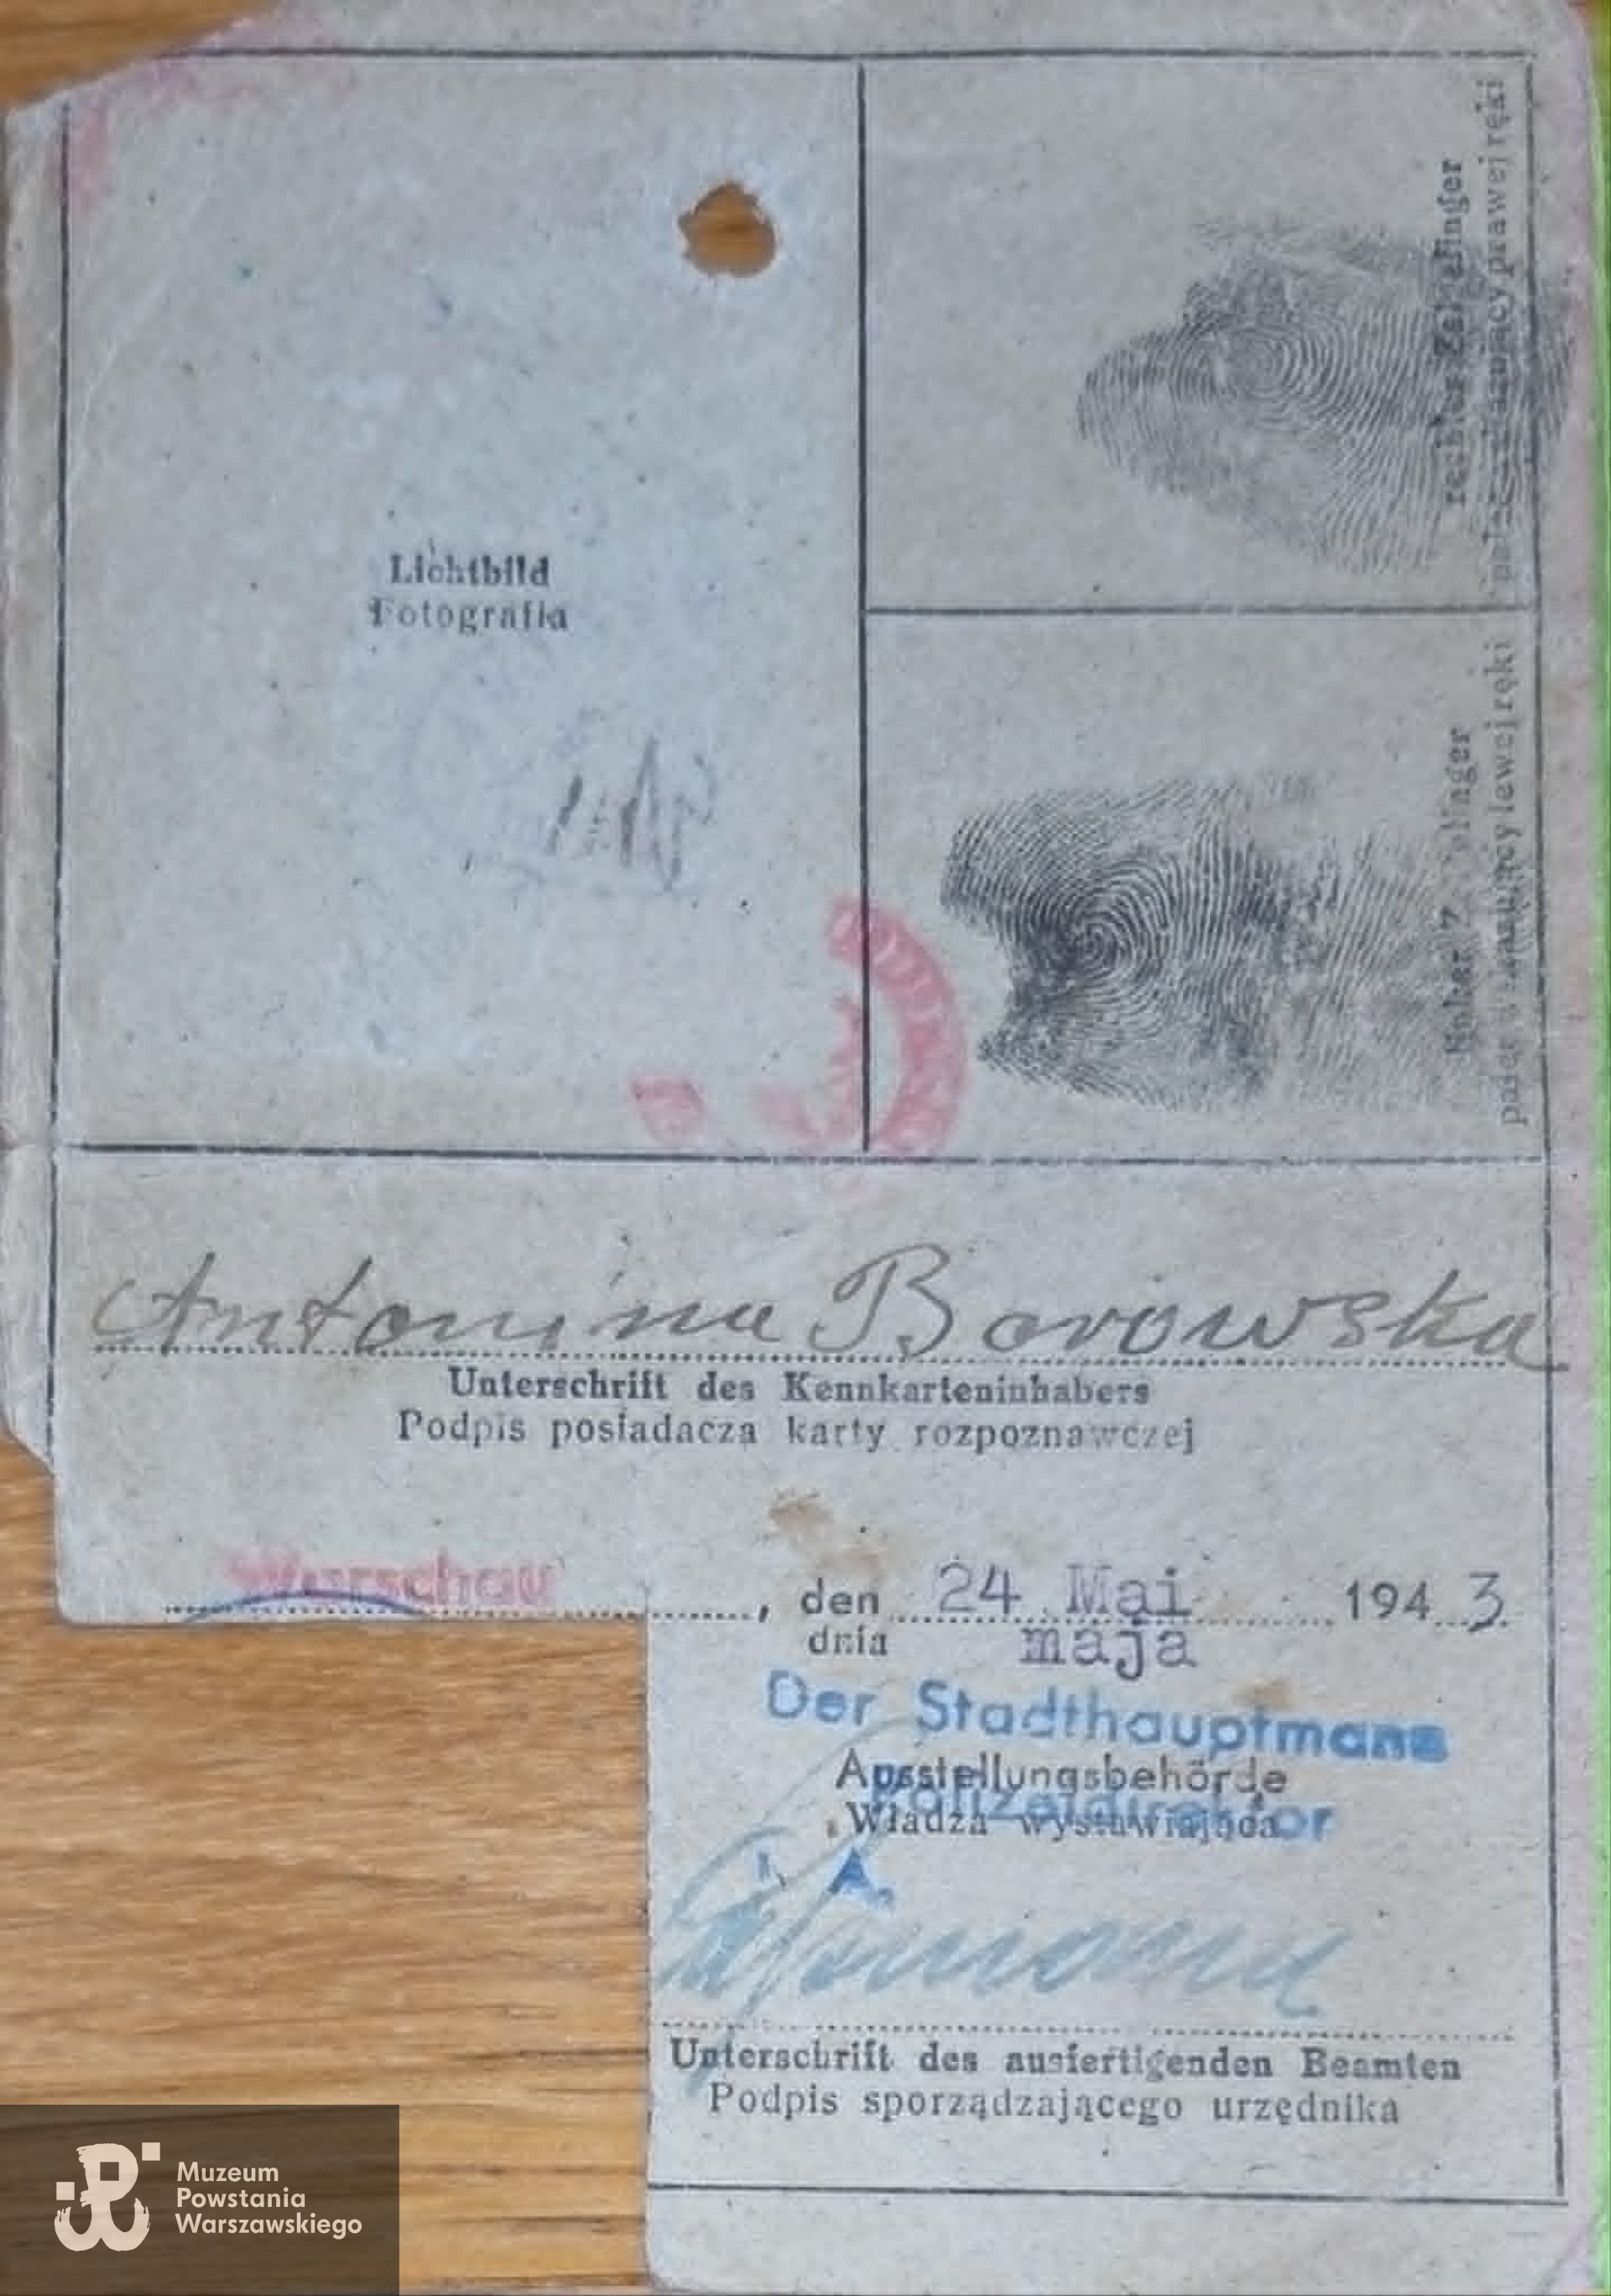 Lichtbild
Fotografia
rechter Zeigefinger
palec wskazujący prawej ręki
linker Zeigefinger
palec wskazujący lewej ręki
Antonina Borowska
Unterschrift des Kennkarteninhabers
Podpis posiadacza karty rozpoznawczej
Warschau, den 24 Mai 1943
dnia maja
Der Stadthauptmann
Ausstellungsbehörde
Polizeidirektor
Władza wystawiająca
I. A.
Unterschrift des ausfertigenden Beamten
Podpis sporządzającego urzędnika
Muzeum
Powstania
Warszawskiego